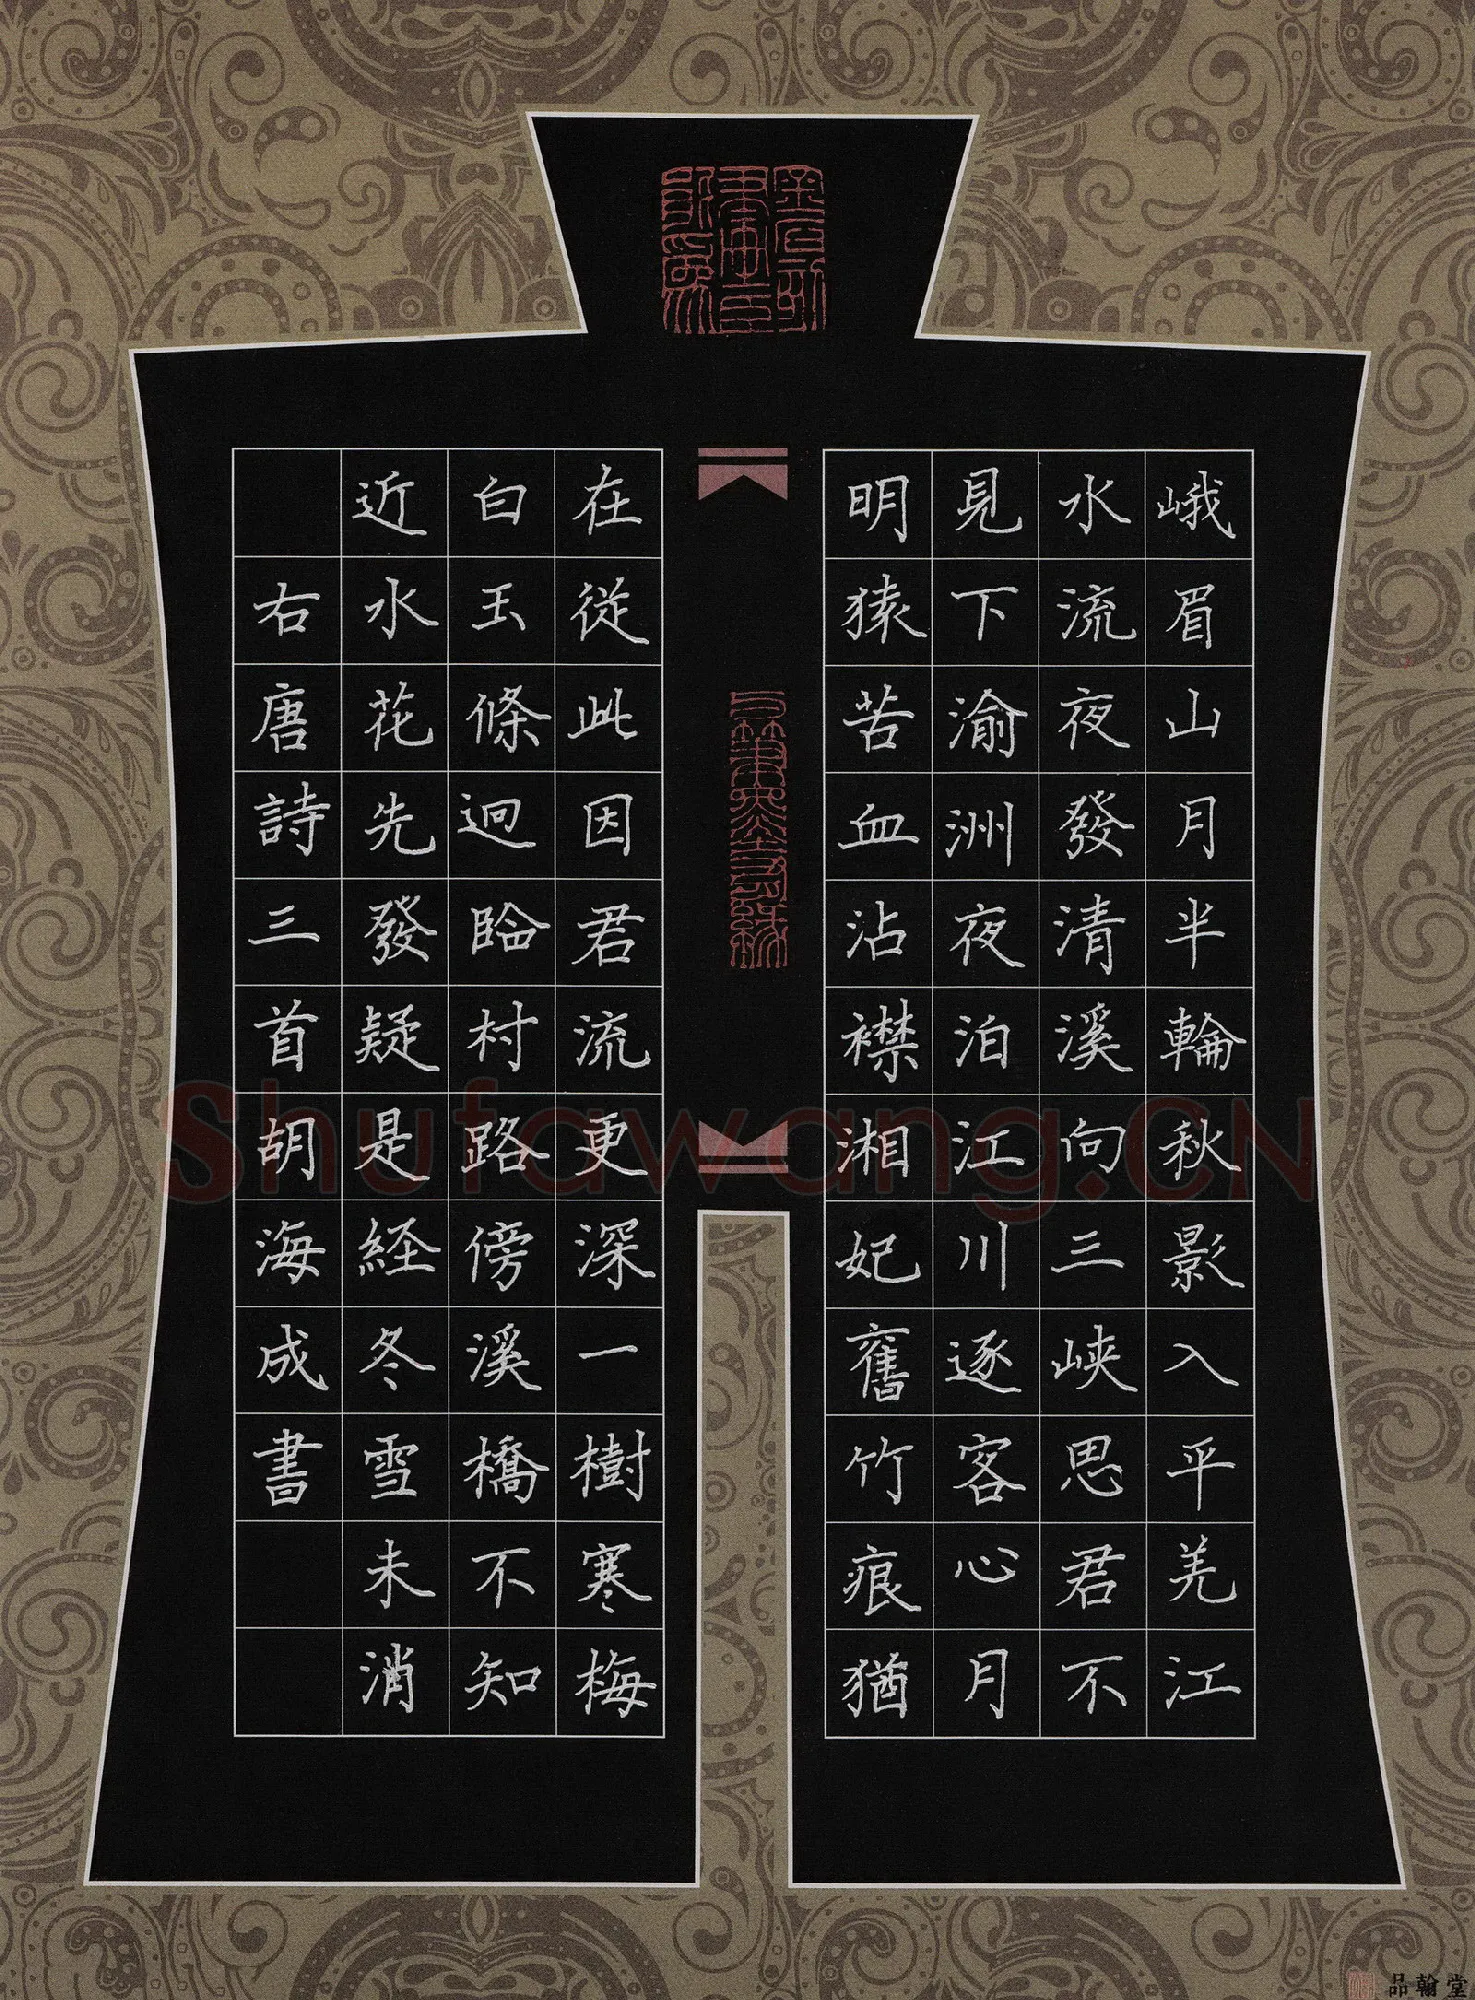 峨眉山月半輪秋影入平羌江
水流夜發清溪向三峽思君不
見下渝洲夜泊江川逐客心月
明猿苦血沾襟湘妃舊竹痕猶
在從此因君流更深一樹寒梅
白玉條迥臨村路傍溪橋不知
近水花先發疑是経冬雪未消
右唐詩三首胡海成書
Shufawang.CN
品翰堂